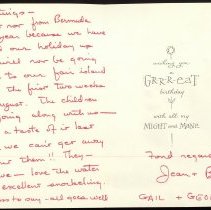 tings -
not from Bermuda
year because we have
our holiday up
will now be going
to our fair island
the first two weeks
August. The children
going along with us -
a taste of it last
we can't get away
out them!! They -
we - love the water
excellent snorkeling.
to say - all goes well
wishing you
a
GR-R-R-EAT
birthday
with all my
MIGHT and MANE
Fond regards
Jean +
GAIL + GEO